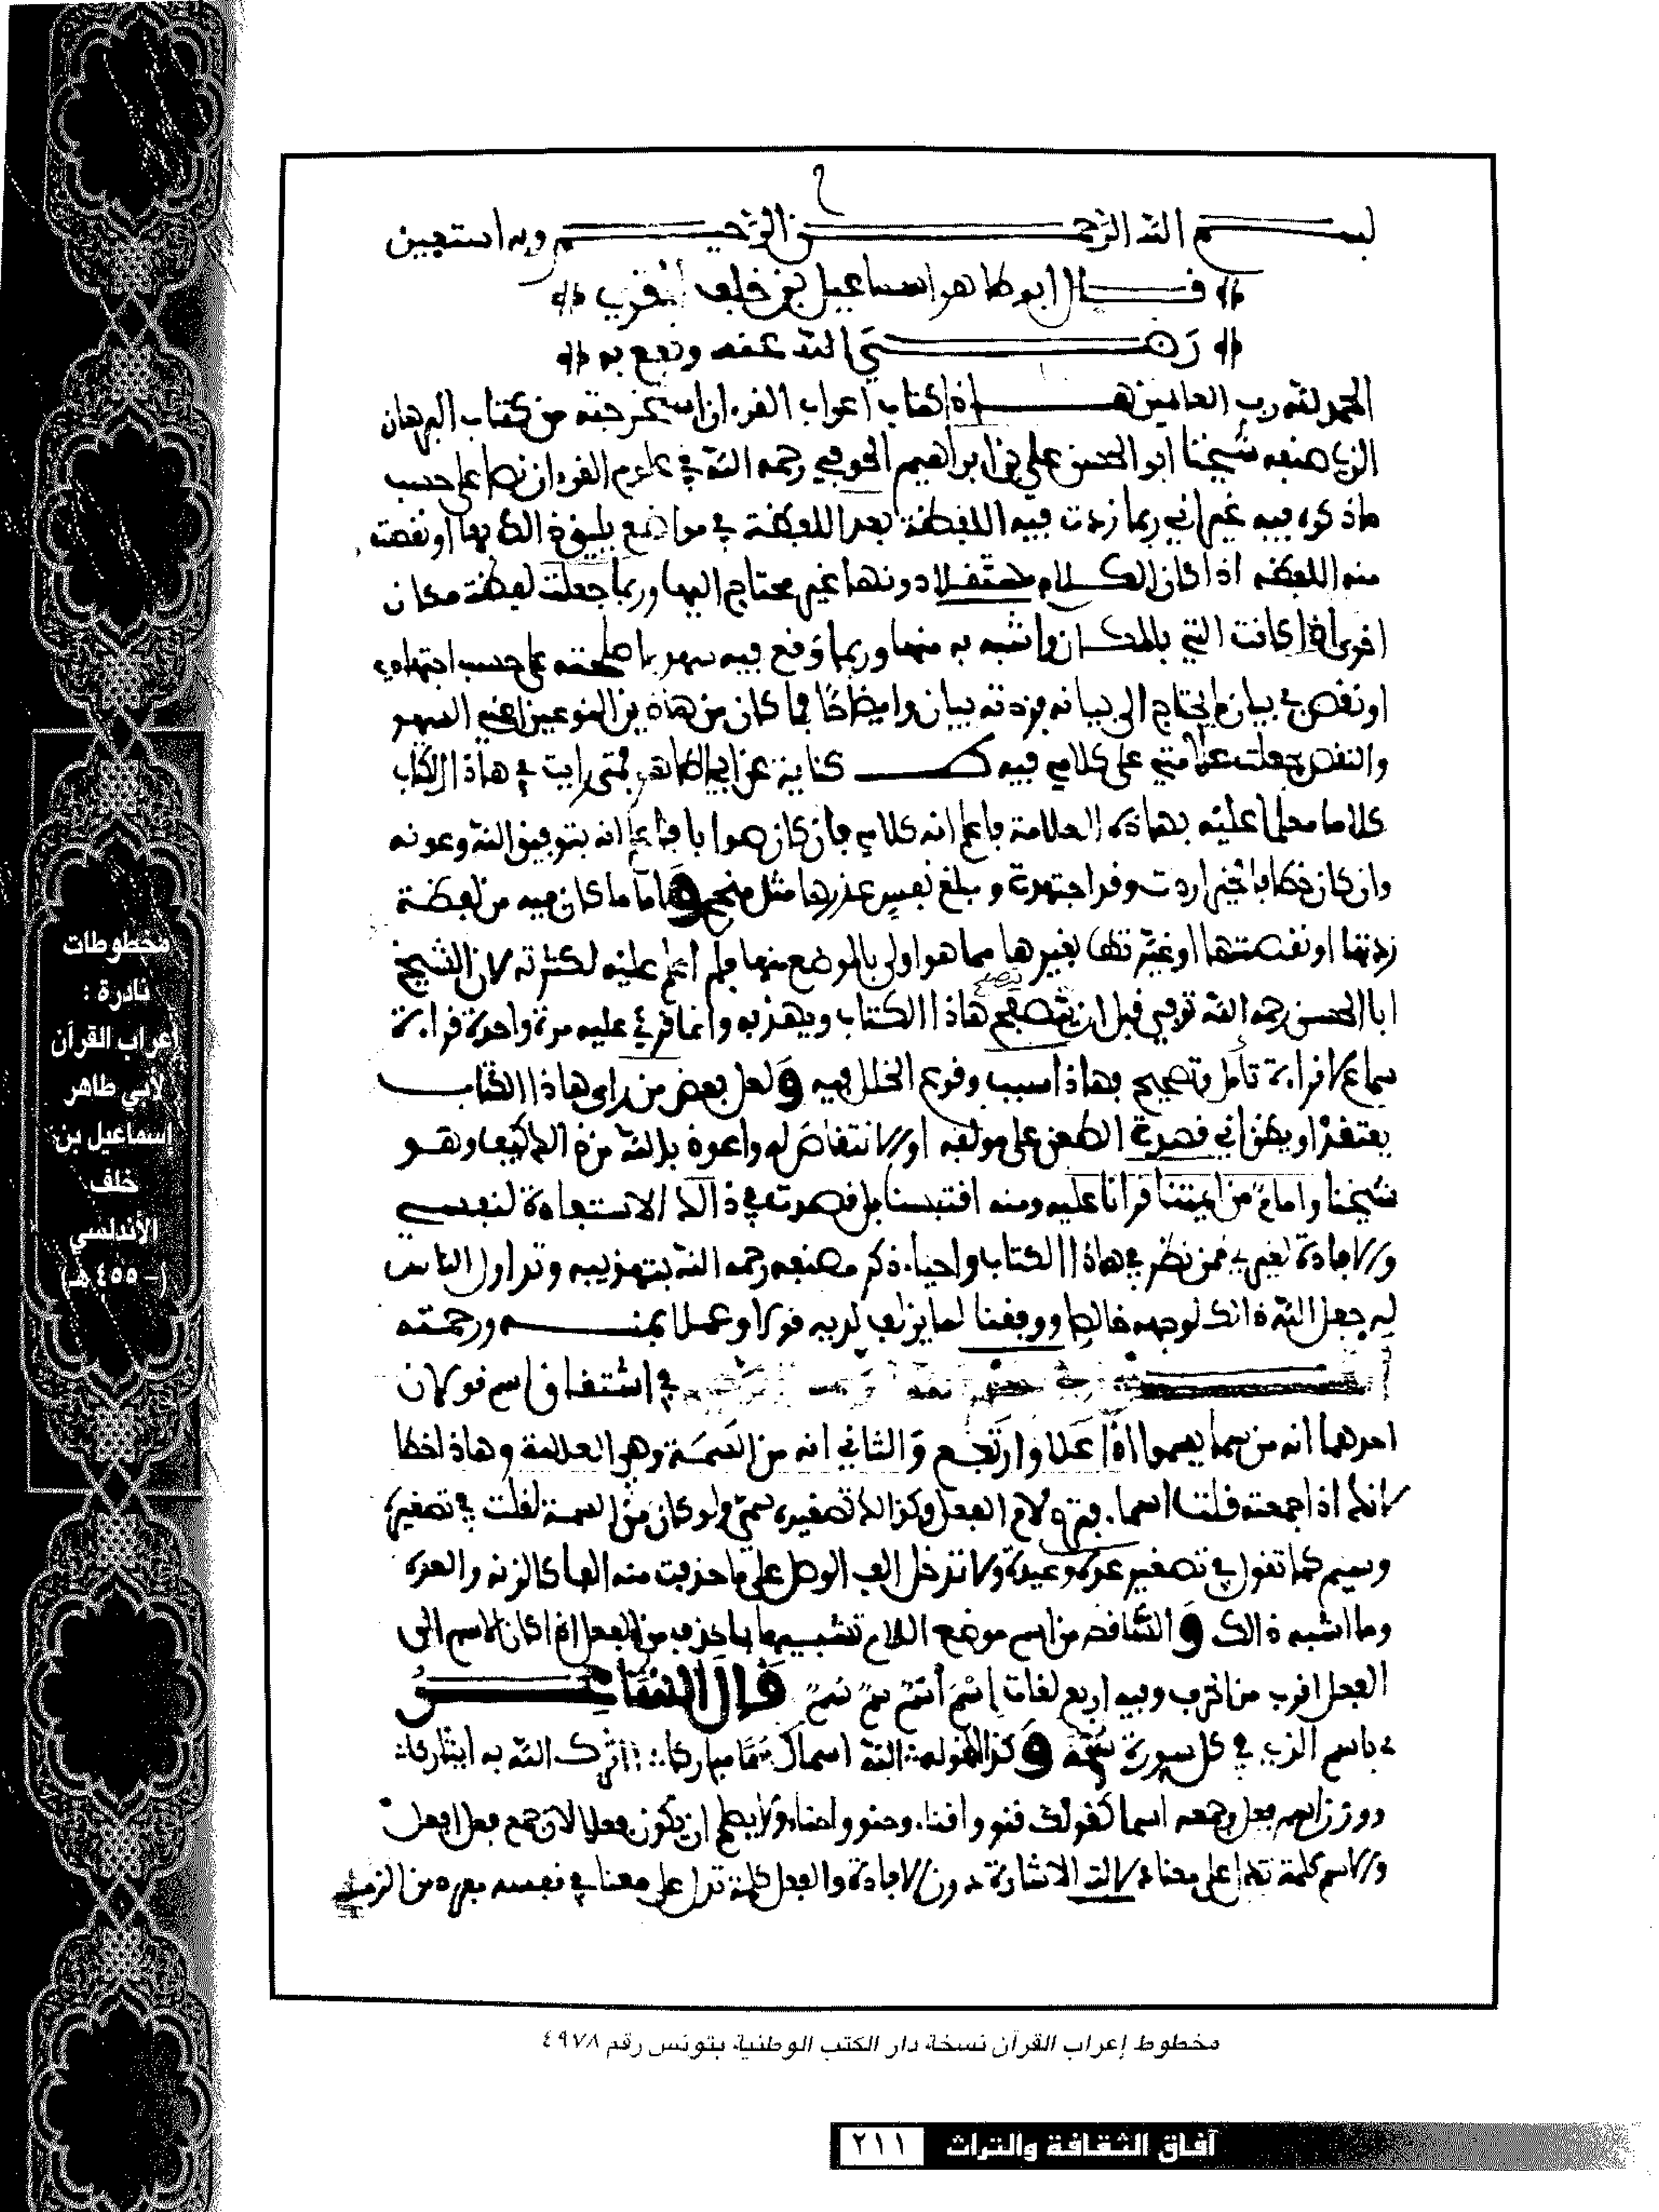 بسم الله الرحمن الرحيم وبه استعين
قال ابو طاهر اسماعيل بن خلف المقرب
رضي الله عنه ونفع به
الحمد لله رب العالمين هاذا كتاب اعراب القرءان استخرجته من كتاب البرهان
الذي صنعه شيخنا ابو الحسن علي بن ابراهيم الحوفي رحمه الله في علوم القرءان نصا على حسب
ما ذكره فيه غير اني ربما زدت فيه اللفظة بعد اللفظة في مواضع يليق ذالك بها او نقصت
منه اللفظه اذا كان الكلام مستقلا دونها غير محتاج اليها وربما جعلت لفظة مكان
اخرى اذا كانت التي بالمكان اشبه به منها وربما وقع فيه سهو باصلحته على حسب اجتهادي
او نقص في بيان ما يحتاج الى بيانه فزدته بيانا وايضاحا فما كان من هاذين النوعين اعني السهو
والنقص جعلت علامتي على كلامي فيه ط كناية عن ابي الطاهر فمتى رايت في هاذا الكتاب
كلاما معلما عليه بهاذه العلامة فاعلم انه كلامي فان كان صوابا فاعلم انه بتوفيق الله وعونه
وان كان خطا فالخير اردت وقد اجتهدت ومبلغ نفس عذرها مثل منجح واما ما كان فيه من لفظة
زدتها او نقصتها او غيرتها بغيرها مما هو اولى بالموضع منها فلم اعلم عليه لكثرته لان الشيخ
ابا الحسن رحمه الله توفي قبل ان يتصفح هاذا الكتاب ويهذبه وانما قرئ عليه مرة واحدة قراءة
سماع لا قراءة تامل وتصحيح فهاذا سبب وقوع الخلل فيه ولعل بعض من راى هاذا الكتاب
يعتقد او يظن اني قصدت الطعن على مولفه او الانتقاص له واعوذ بالله من ذالك كيف وهو
شيخنا وامام من ايمتنا قرانا عليه ومنه اقتبسنا بل قصدت في ذالك الاستفادة لنفسي
والافادة لغيري ممن نظر في هاذا الكتاب واحياء ذكر مصنفه رحمه الله بتهذيبه وتداول الناس
له جعل الله ذالك لوجهه خالصا ووفقنا لما يزلف لديه قولا وعملا بمنه ورحمته
في اشتقاق اسم قولان
احدهما انه من سما يسموا اذا علا وارتفع والثاني انه من السمة وهي العلامة وهاذا خطا
لانك اذا جمعته قلت اسماء فترد لام الفعل وكذالك تصغيره سمي ولو كان من السمة لقلت في تصغيره
وسيم كما تقول في تصغير عدة وعيدة ولا تدخل الف الوصل على ما حذفت منه الفا كالزنه والعده
وما اشبه ذالك والساقط من اسم موضع اللام تشبيها بما حذف من الفعل اذ كان الاسم الى
الفعل اقرب من الحرف وفيه اربع لغات اسم اسم سم سم قال الشاعر
باسم الذي في كل سورة سمه وكذا قوله الله اسماك سما مباركا اثرك الله به ايثاركا
ووزن اسم فعل وجمعه اسما كقولك قنو واقناء وحنو واحناء ولا يصلح ان يكون فعلا لان جمع فعل افعل
والاسم كلمة تدل على معنا دلالة الاشارة دون الافادة والفعل كلمة تدل على معنا في نفسه
مخطوط إعراب القرآن نسخة دار الكتب الوطنية بتونس رقم ٤٩٧٨
مخطوطات
نادرة :
إعراب القرآن
لأبي طاهر
إسماعيل بن
خلف
الأندلسي
(- ٤٥٥ هـ)
آفاق الثقافة والتراث ٢١١